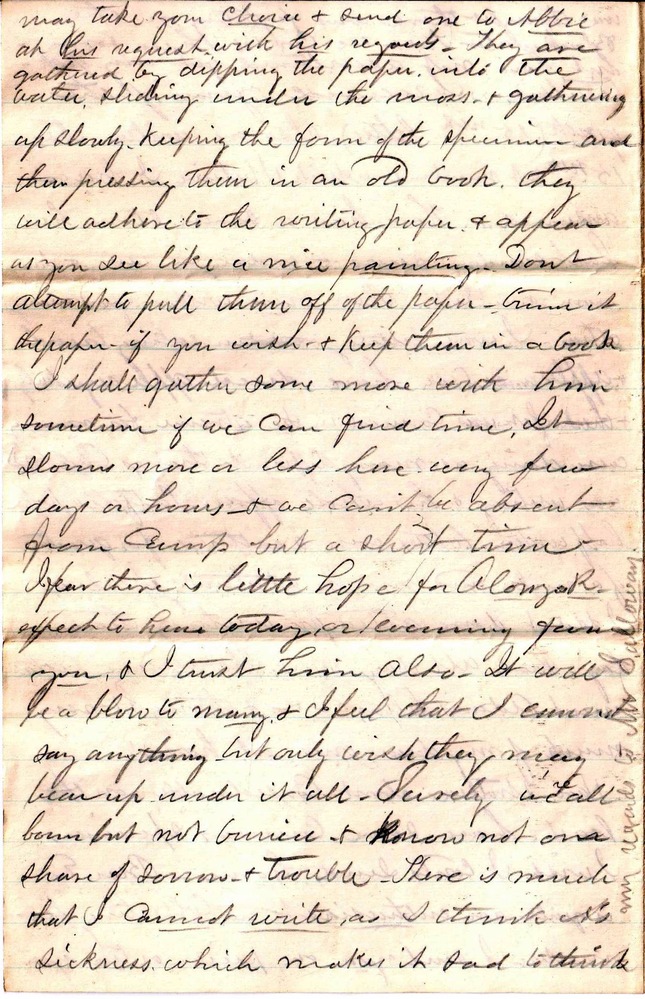 may take your choice & send one to Abbie
at his request with his regards - They are
gathered by dipping the paper into the
water, sliding under the moss & gathering
up slowly. Keeping the form of the specimen and
then pressing them in an old book. they
will adhere to the writing paper & appear
as you see like a nice painting. Dont
attempt to pull them off of the paper - trim it
the paper - if you wish & keep them in a book.
I shall gather some more with him
sometime if we can find time, It
storms more or less here every few
days or hours - & we can't be absent
from Camp but a short time -
I fear there is little hope for Alonzo R.
expect to hear today, or evening from
you, & I trust him also - It will
be a blow to many & I feel that I cannot
say anything but only wish they may
bear up under it all - Surely we're all
born but not buried & know not our
share of sorrow & trouble - There is much
that I cannot write, as I think it's
sickness which makes it sad to think
my regards to Mrs Salloway.